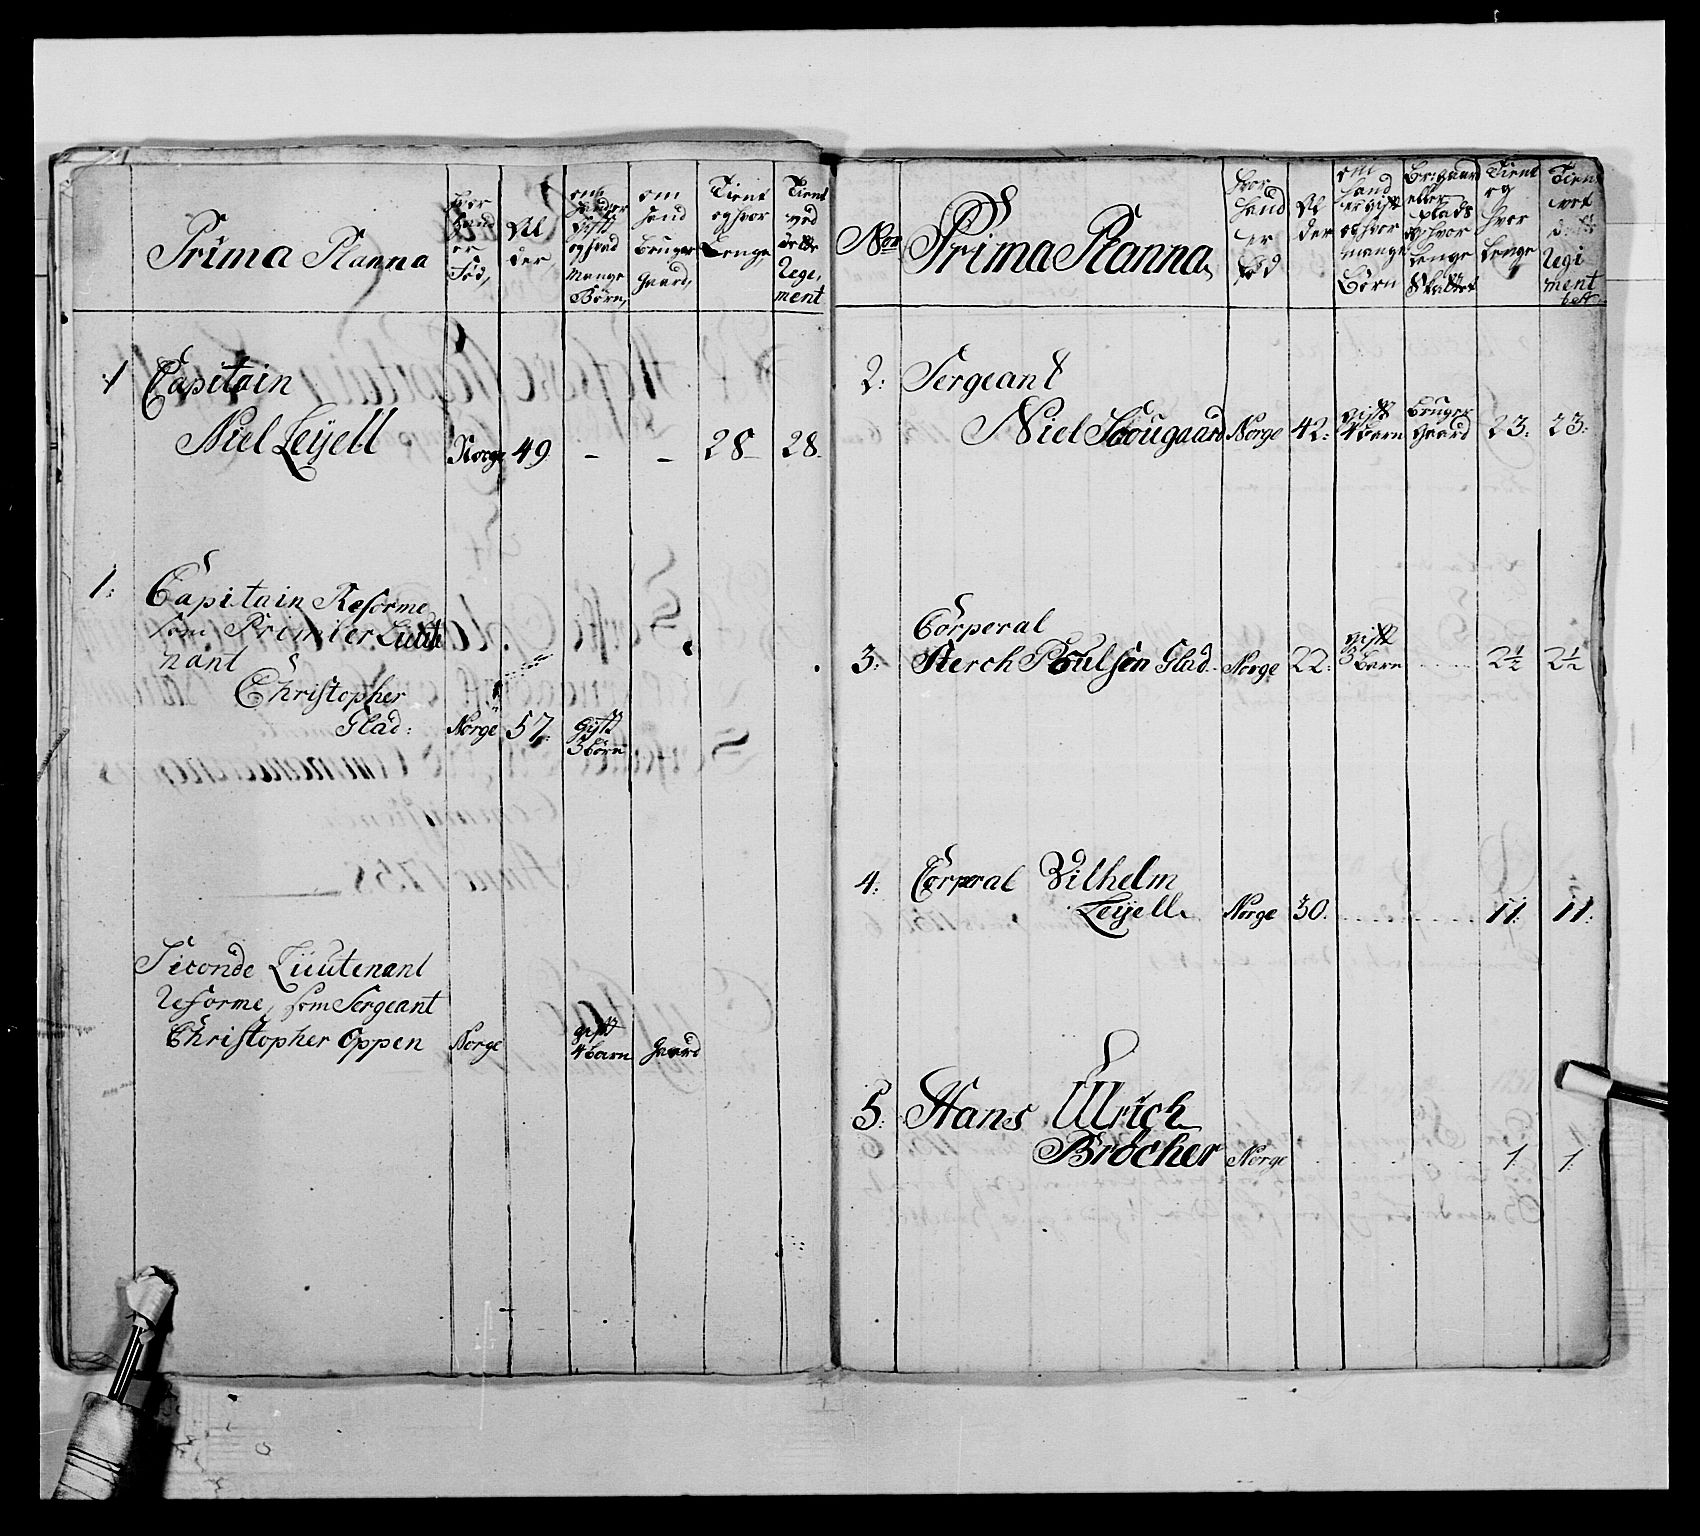 Prima Planna
hvor hand er Fød,
Al der
om hand er gift og hvad mange Børn,
om hand bruger Gaard,
Tient og hvor Lenge
Tient ved dette Regi, ment
1 Capitain
Niel Leÿell Norge 49 - - 28 28
1: Capitain Reforme
som Premier Lieute
nant
Christopher
Glad: Norge 57. Gift 3 börn
Seconde Lieutenant
Reforme, som Sergeant
Christopher Oppen Norge gift 4 barn Gaard
No Prima Planna,
hvor hand er fød
Al der
om hand er gift og hvor mange Börn
Tient og hvor Lenge
Tient vet dette Regi ment
2: Sergeant
Niel Skougaard Norge 42: gift 4 barn bruger gaard 23: 23:
Corperal
3: Kerch Poulsen Glad Norge 22: gift 3 barn 2½ 2½
4: Corperal Vilhelm
Leÿell Norge 30. 11: 11:
5: Hans Ulrich
Bröcher Norge 1: 1: